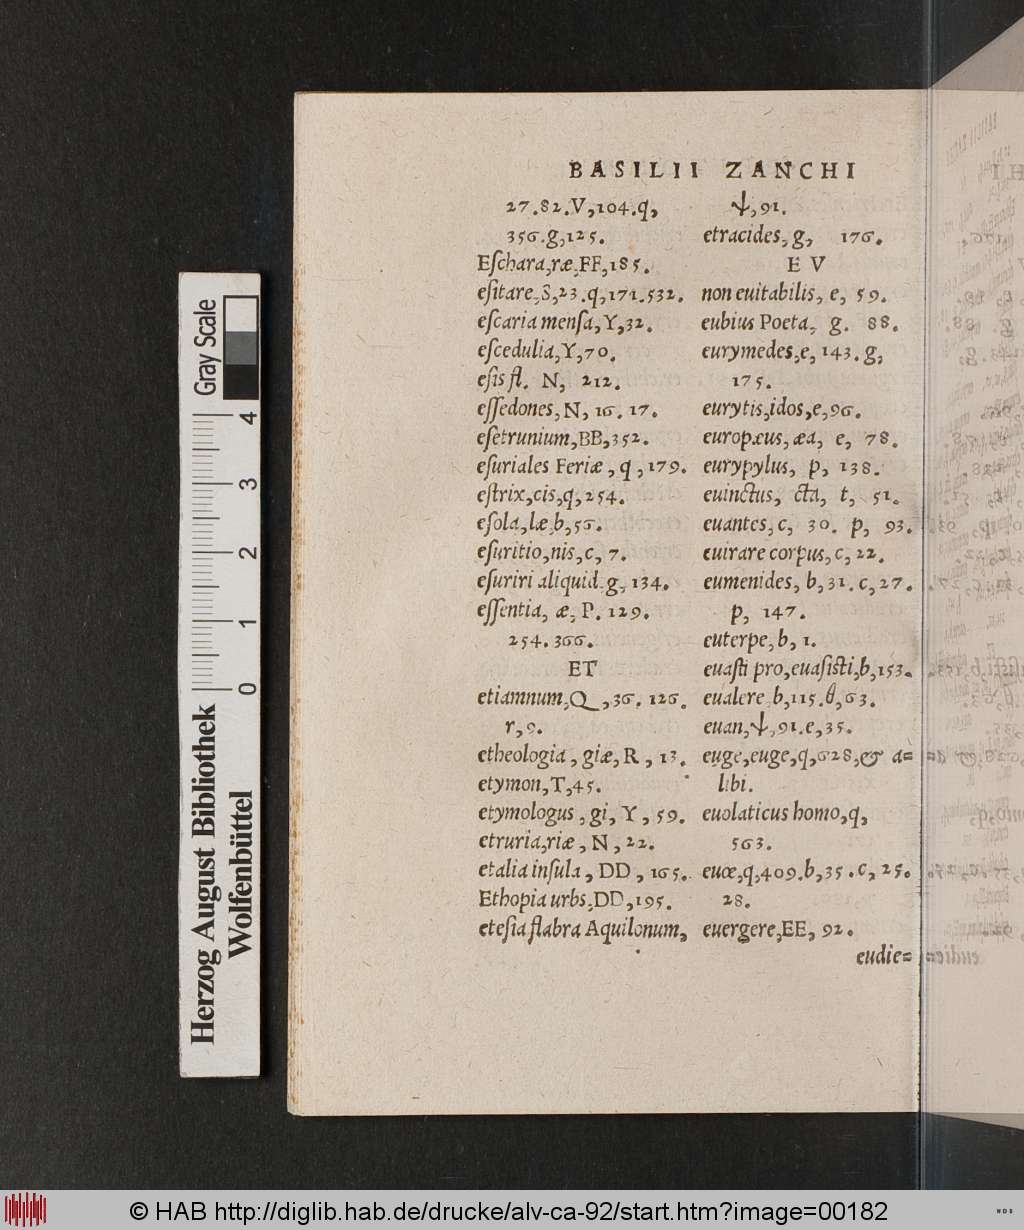 BASILII ZANCHI
27.82.V,104.q,
356.g,125.
Eſchara,ræ,FF,185.
eſitare,S,23.q,171.532.
eſcaria menſa,Y,32.
eſcedulia,Y,70.
eſis fl. N, 212.
eſſedones,N,16.17.
eſetrunium,BB,352.
eſuriales Feriæ,q,179.
eſtrix,cis,q,254.
eſola,læ,b,56.
eſuritio,nis,c,7.
eſuriri aliquid,g,134.
eſſentia, æ, P. 129.
254.366.
ET
etiamnum,Q,36.126.
r,9.
etheologia, giæ, R, 13.
etymon,T,45.
etymologus, gi, Y, 59.
etruria,riæ, N, 22.
etalia inſula, DD, 165.
Ethopia urbs,DD,195.
eteſia flabra Aquilonum,
ψ,91.
etracides, g, 176.
EV
non euitabilis, e, 59.
eubius Poeta, g. 88.
eurymedes,e,143.g,
175.
eurytis,idos,e,96.
europæus, æa, e, 78.
eurypylus, p, 138.
euinctus, cta, t, 51.
euantes, c, 30. p, 93.
euirare corpus,c,22.
eumenides, b,31.c,27.
p, 147.
euterpe,b,1.
euaſti pro,euaſiſti,b,153.
eualere,b,115.θ,63.
euan,ψ,91.e,35.
euge,euge,q,628,& a=
libi.
euolaticus homo,q,
563.
euœ,q,409.b,35.c,25.
28.
euergere,EE, 92.
eudie=
Gray Scale
4
3
2
1
0
Herzog August Bibliothek
Wolfenbüttel
© HAB http://diglib.hab.de/drucke/alv-ca-92/start.htm?image=00182